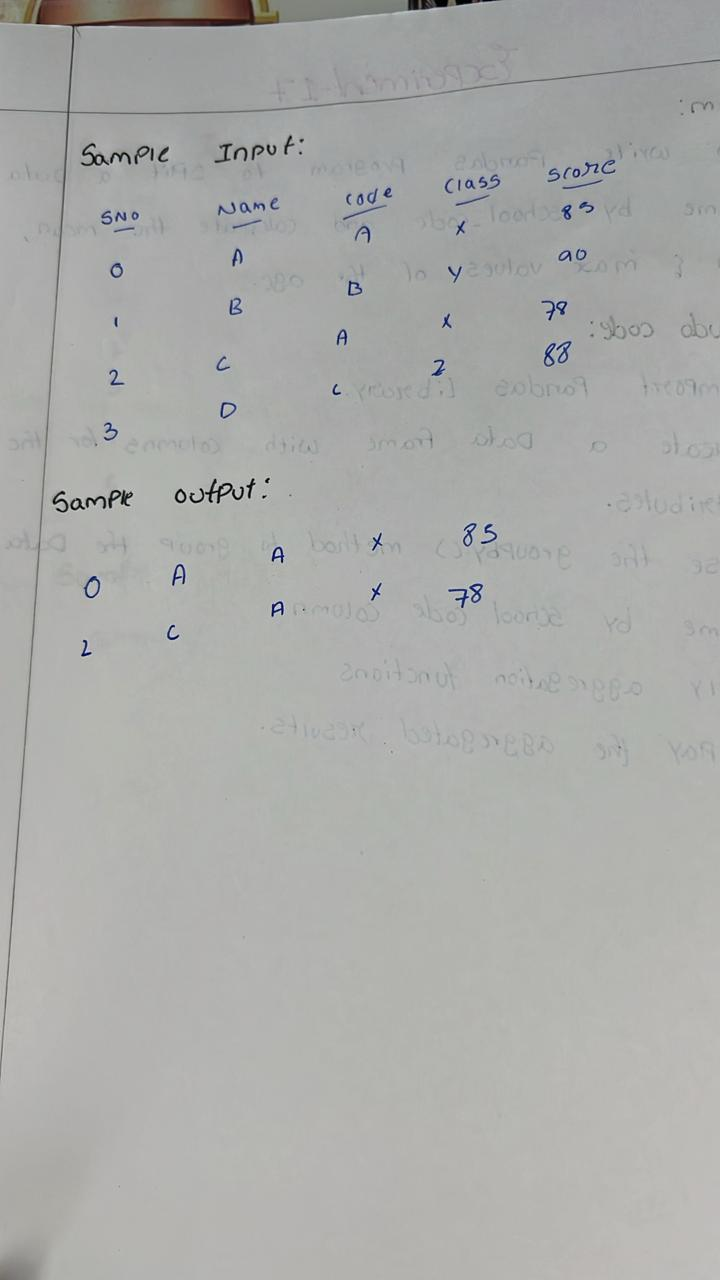 Sample Input:
SNO Name Code Class Score
0 A A X 85
1 B B Y 90
2 C A X 78
3 D C Z 88
Sample output:
0 A A X 85
2 C A X 78